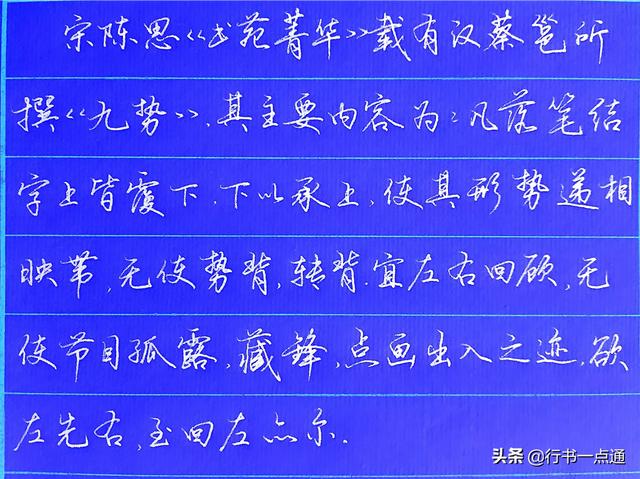 宋陈思《书苑菁华》载有汉蔡邕所
撰《九势》.其主要内容为:凡落笔结
字上皆覆下,下以承上,使其形势递相
映带,无使势背,转背.宜左右回顾,无
使节目孤露,藏锋,点画出入之迹,欲
左先右,至回左亦尔.
头条 @行书一点通